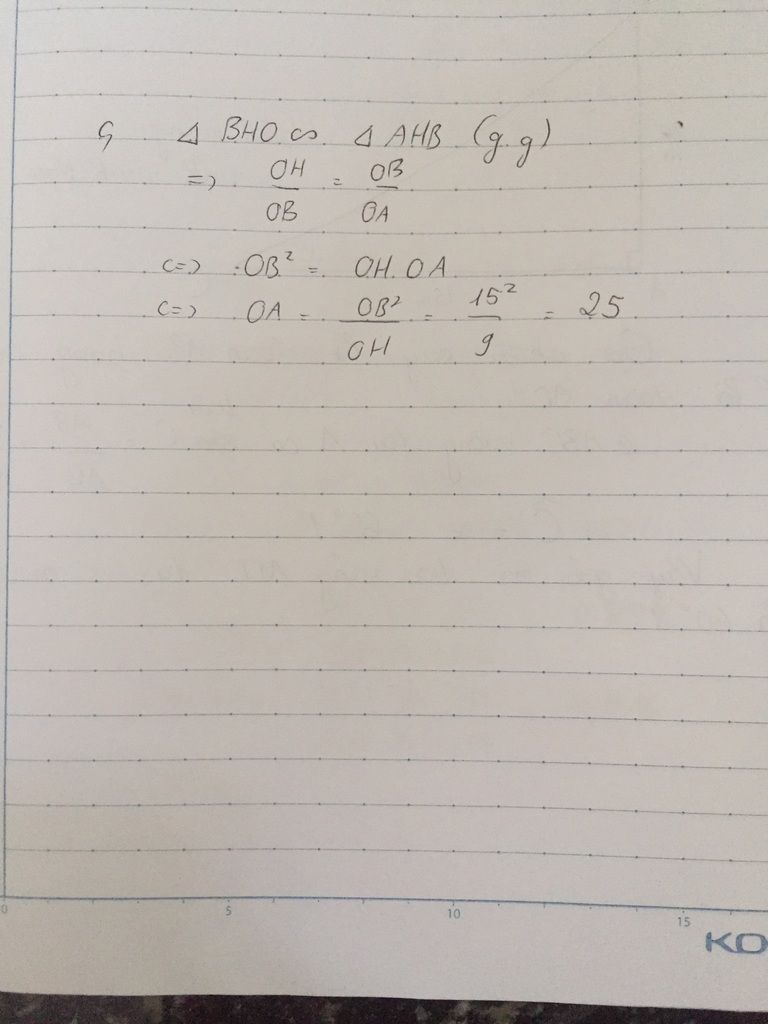 Δ BHO ∽ Δ AHB (g.g)
=> OH/OB = OB/OA
<=> OB² = OH.OA
<=> OA = OB²/OH = 15²/9 = 25
0 5 10 15
KO